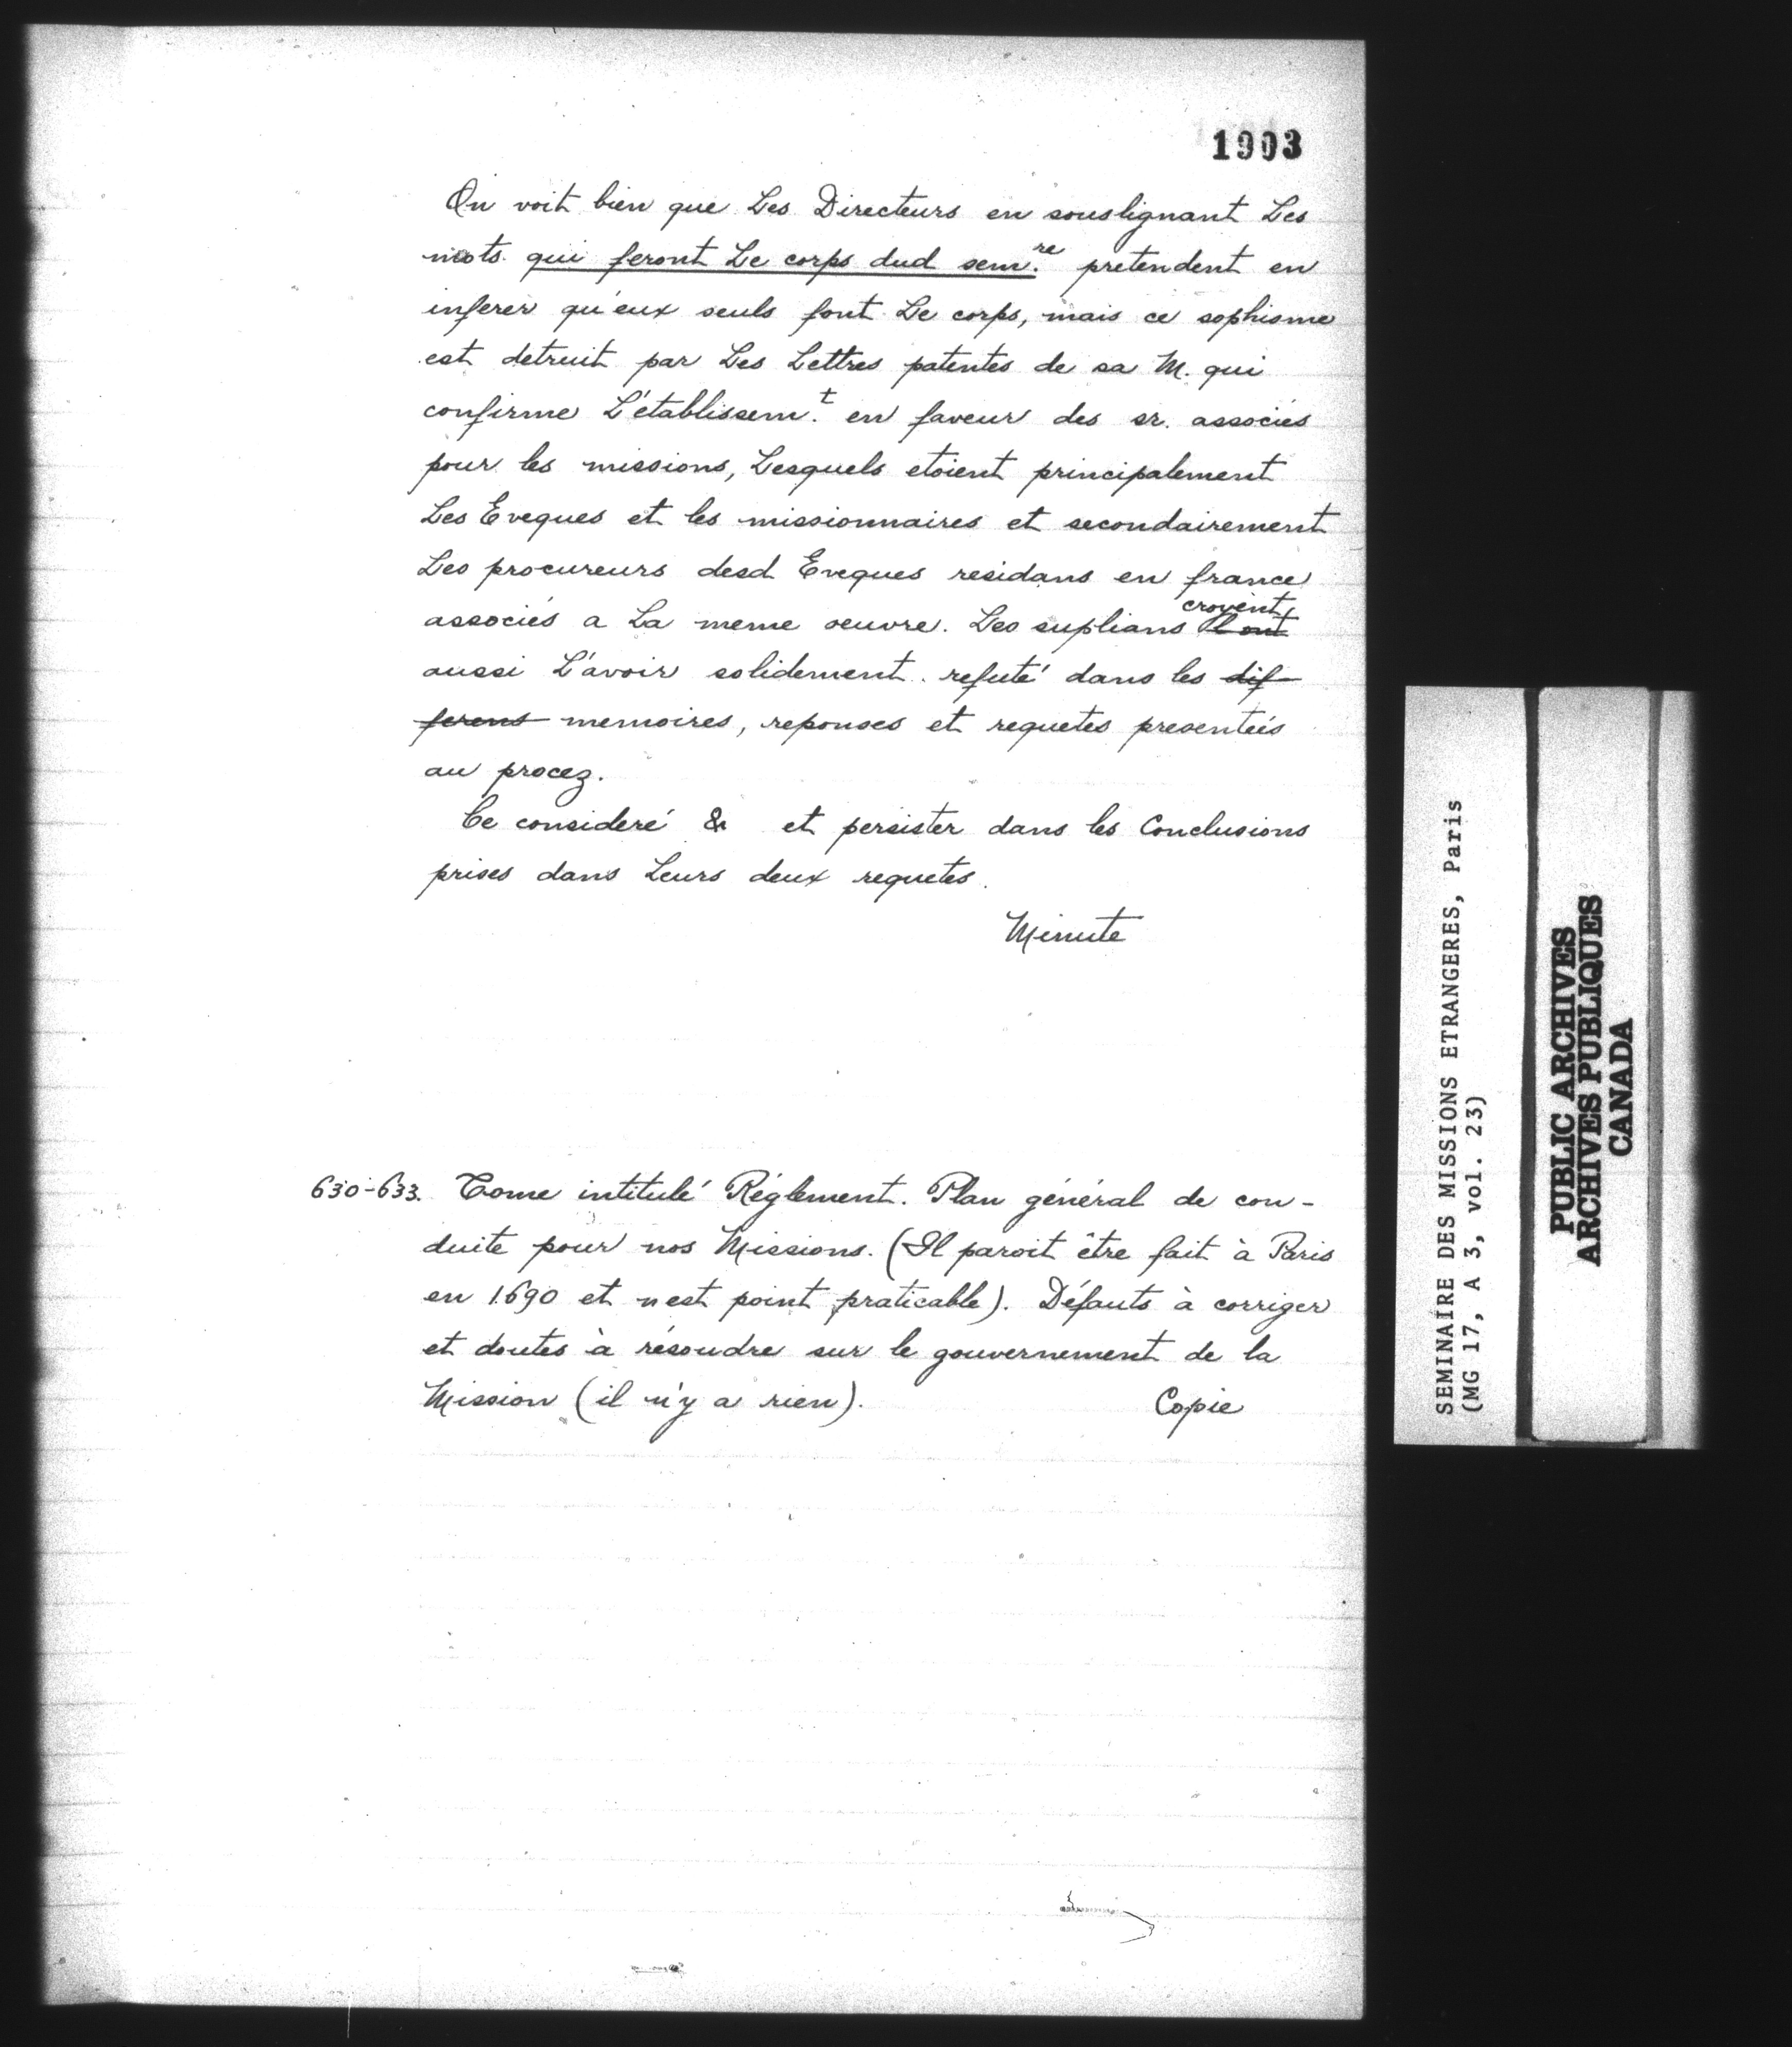 1903
On voit bien que Les Directeurs en souslignant Les
mots qui feront Le corps dud sem.re pretendent en
inferer qu'eux seuls font Le corps, mais ce sophisme
est detruit par Les Lettres patentes de sa M. qui
confirme L'établissem.t en faveur des sr. associés
pour les missions, Lesquels etoient principalement
Les Eveques et les missionnaires et secondairement
Les procureurs desd Eveques residans en france
croyent
associés a La meme oeuvre. Les suplians l'ont
aussi L'avoir solidement refuté dans les dif-
ferens memoires, reponses et requetes presenteés
au procez.
Ce consideré & et persister dans les Conclusions
prises dans Leurs deux requetes.
Minute
630-633. Tome intitulé Réglement. Plan général de con-
duite pour nos Missions. (Il paroit être fait à Paris
en 1690 et n'est point praticable). Défauts à corriger
et doutes à résoudre sur le gouvernement de la
Mission (il n'y a rien). Copie
SEMINAIRE DES MISSIONS ETRANGERES, Paris
(MG 17, A 3, vol. 23)
PUBLIC ARCHIVES
ARCHIVES PUBLIQUES
CANADA